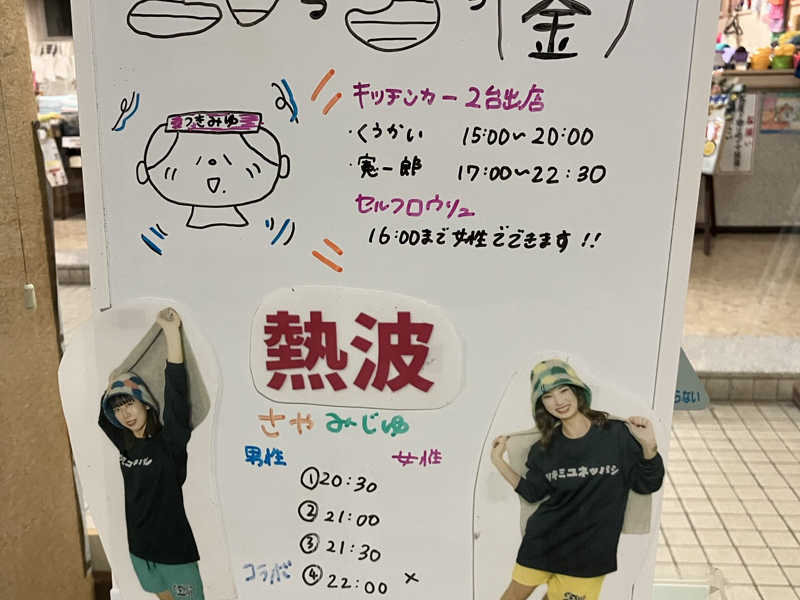 (金)
キッチンカー 2台出店
つきみゆ
・くうかい 15:00〜20:00
・憲一郎 17:00〜22:30
セルフロウリュ
16:00まで女性でできます!!
熱波
さや みーじゅ
男性 女性
① 20:30
② 21:00
③ 21:30
コラボ ④ 22:00 ×
ツキミユネッパシ
らない